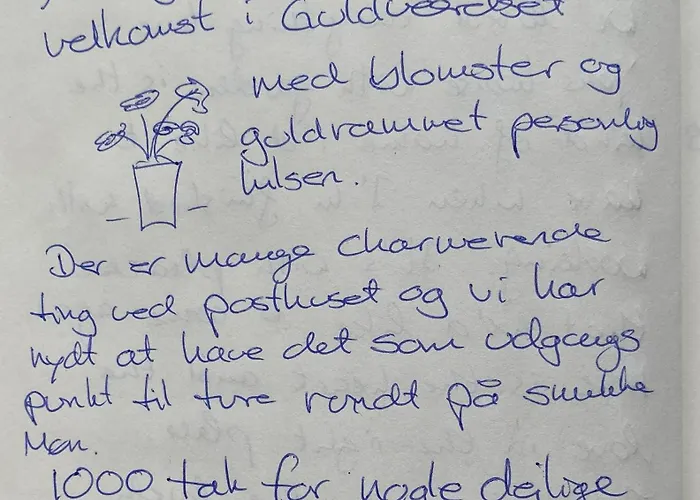 velkomst i Guldværelset
med blomster og
guldrammet personlig
hilsen.
Der er mange charmerende
ting ved posthuset og vi har
nydt at have det som udgangs
punkt til ture rundt på smukke
Møn.
1000 tak for nogle dejlige